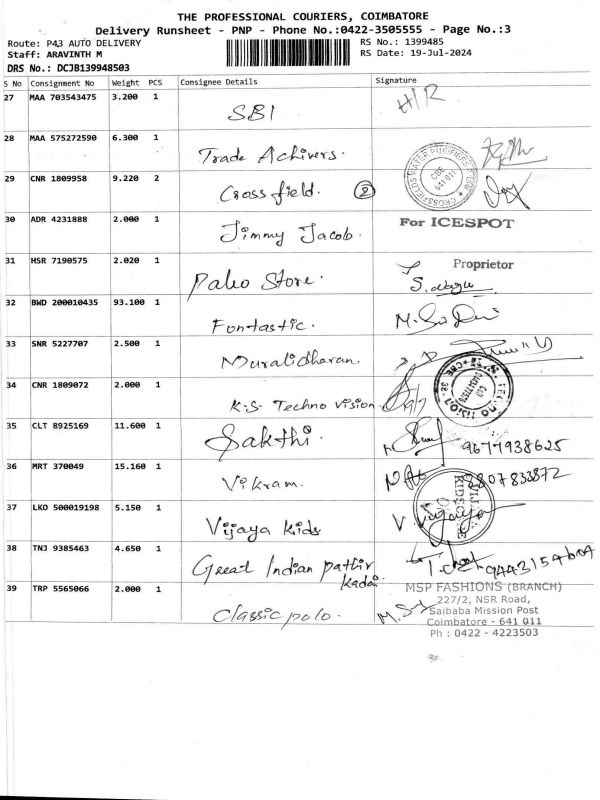 THE PROFESSIONAL COURIERS, COIMBATORE
Delivery Runsheet - PNP - Phone No.:0422-3505555 - Page No.:3
Route: P43 AUTO DELIVERY
RS No.: 1399485
Staff: ARAVINTH M
RS Date: 19-Jul-2024
DRS No.: DCJB139948503
S No Consignment No Weight PCS Consignee Details Signature
27 MAA 703543475 3.200 1 SBI H/R
28 MAA 575272590 6.300 1 Trade Achivers.
29 CNR 1809958 9.220 2 Crossfield. 2
CROSSFIELDS WATER PURIFIERS
CBE
641 011
30 ADR 4231888 2.000 1 Jimmy Jacob. For ICESPOT
31 HSR 7190575 2.020 1 Paleo Store. Proprietor
32 BWD 200010435 93.100 1 Fontastic.
33 SNR 5227707 2.500 1 Muralidharan.
34 CNR 1809072 2.000 1 K.S. Techno Vision.
35 CLT 8925169 11.600 1 Sakthi. 9677938625
36 MRT 370049 15.160 1 Vikram. 8807833872
37 LKO 500019198 5.150 1 Vijaya Kids
38 TNJ 9385463 4.650 1 Great Indian pathir
Kadai
39 TRP 5565066 2.000 1 Classic polo.
MSP FASHIONS (BRANCH)
227/2, NSR Road,
Saibaba Mission Post
Coimbatore - 641 011
Ph : 0422 - 4223503